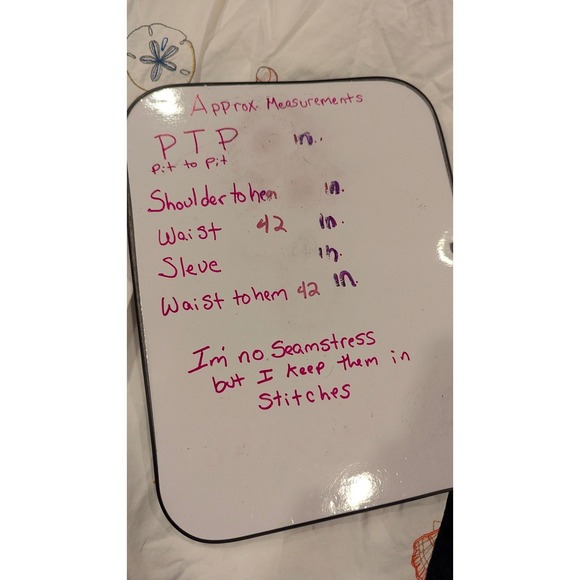 Approx. Measurements
PTP in.
Pit to Pit
Shoulder to hem in.
Waist 42 in.
Sleve in.
Waist to hem 42 in.
I'm no Seamstress
but I keep them in
Stitches